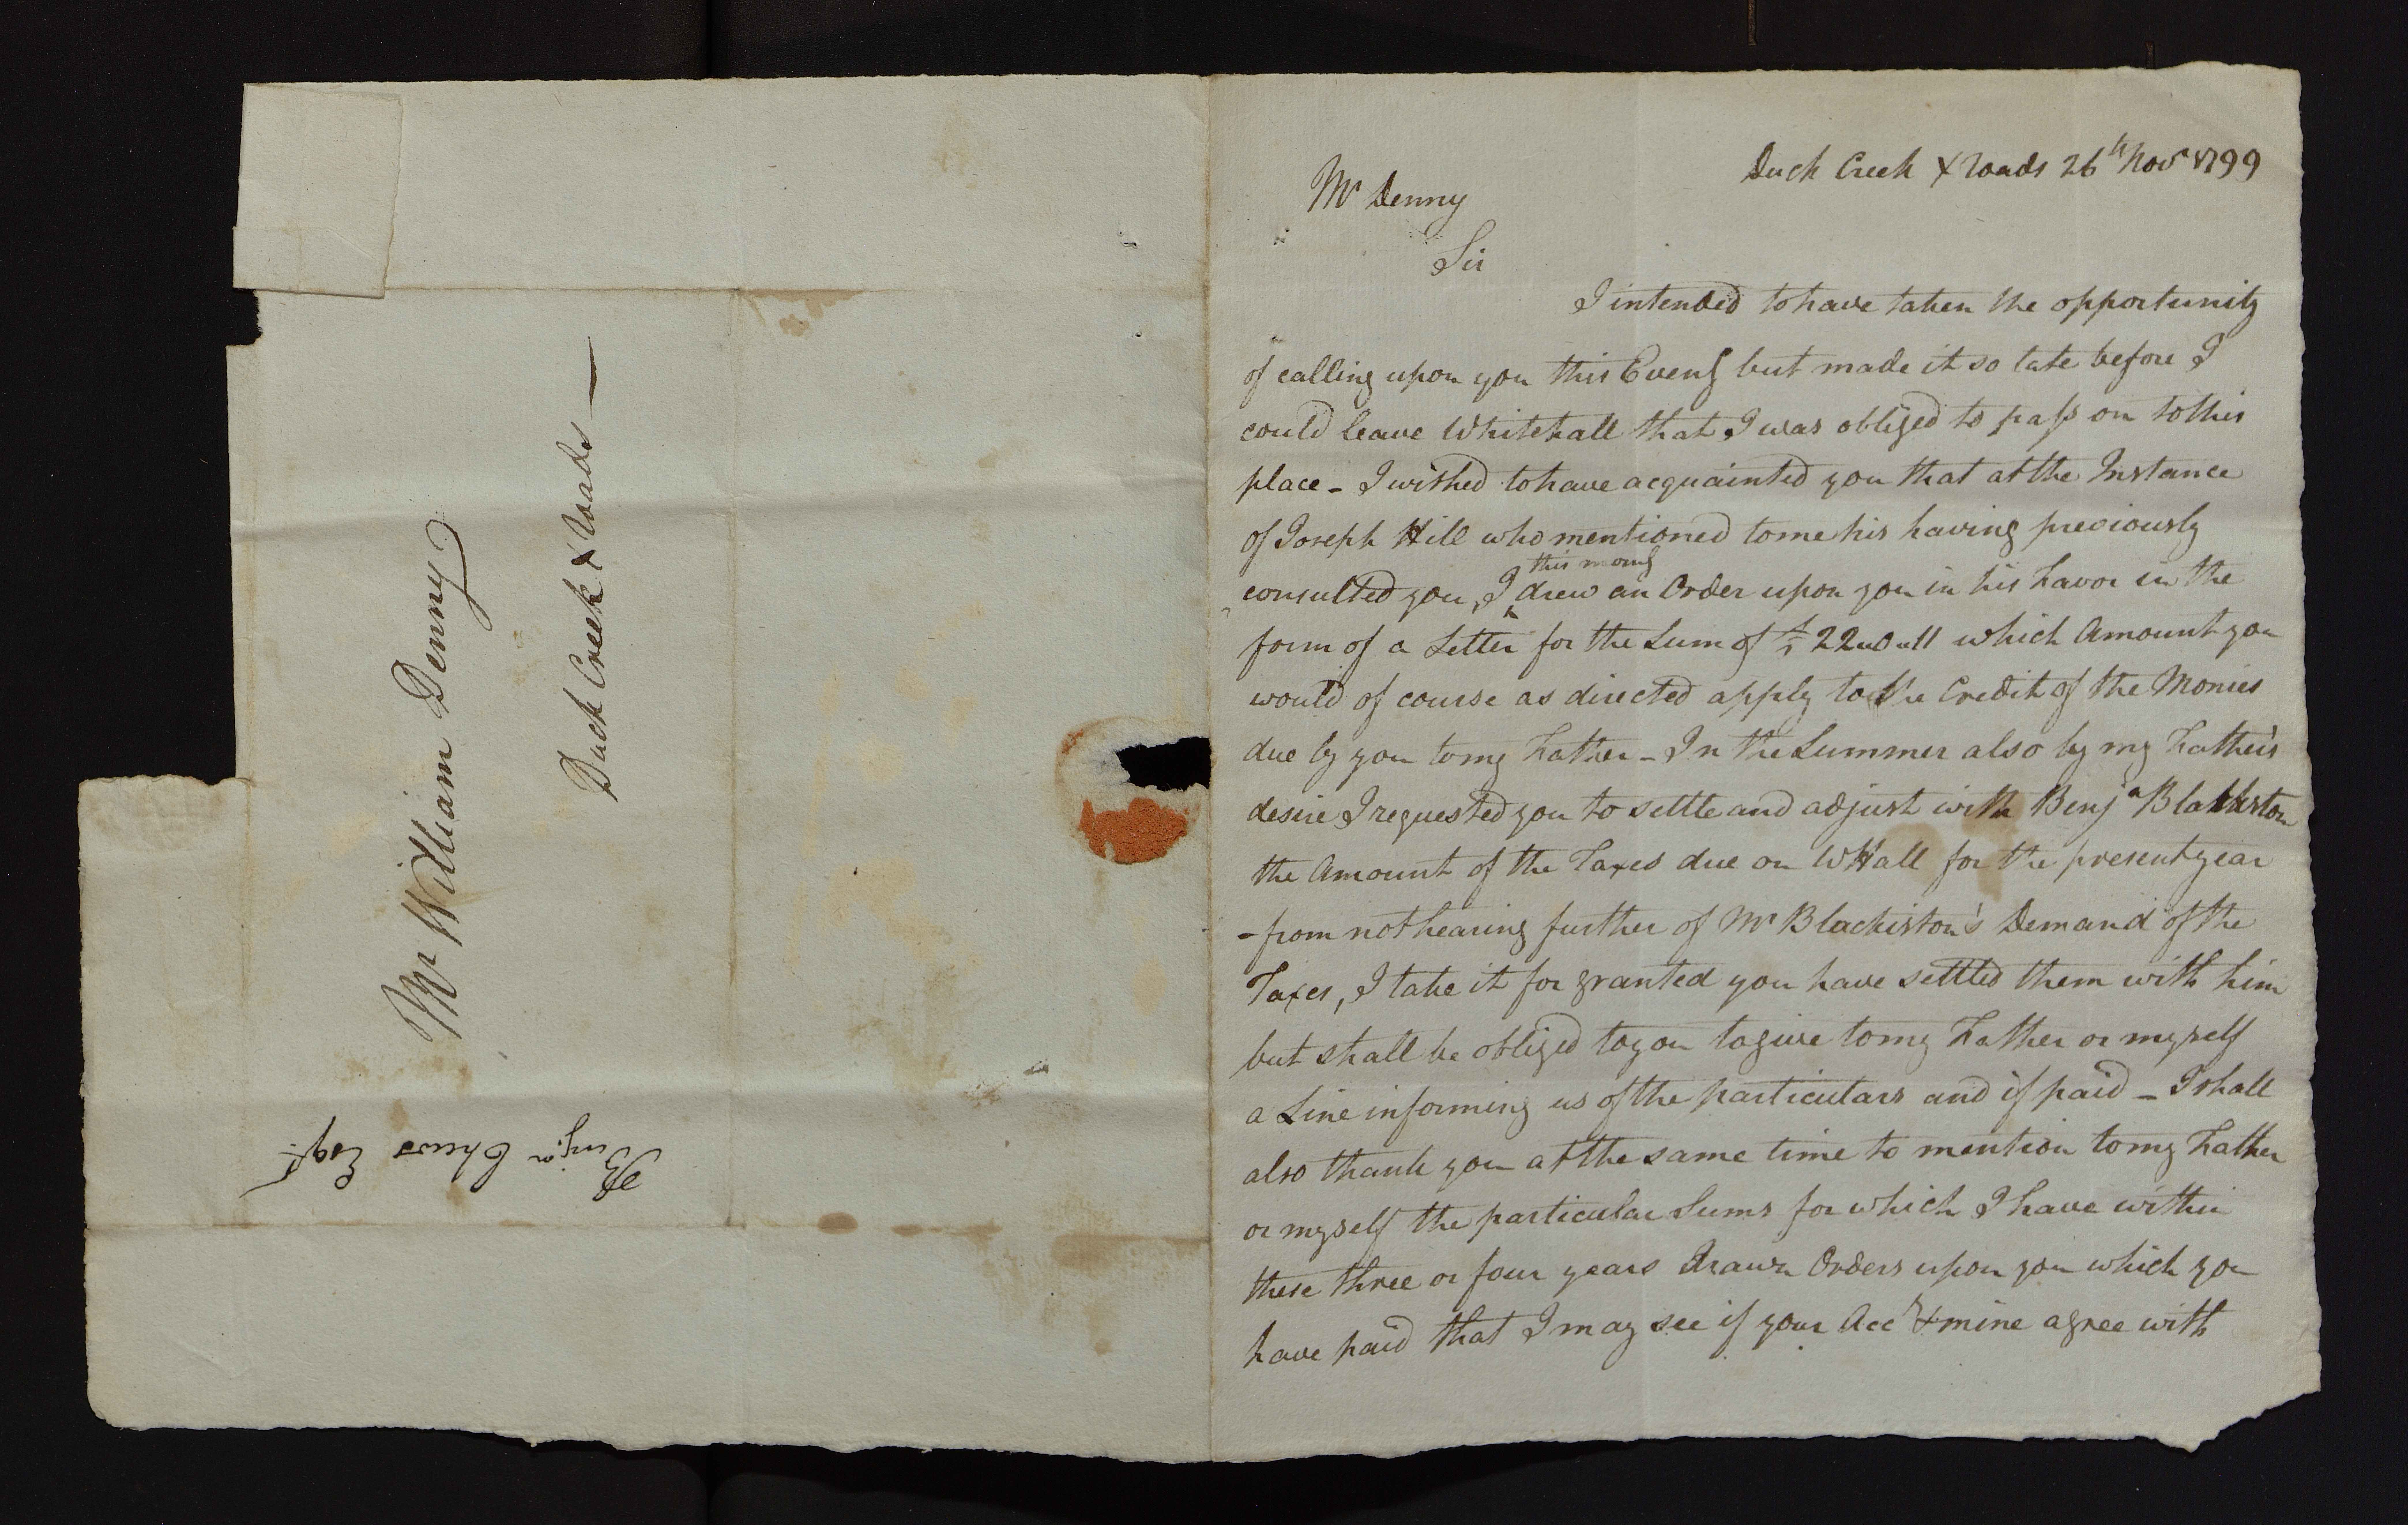 Mr William Denny
Duck Creek X Roads —
Benjn Chews Esqr
Duck Creek X Roads 26th Novr 1799
Mr Denny
Sir
I intended to have taken the opportunity
of calling upon you this Eveng but made it so late before I
could leave Whitehall that I was obliged to pass on to this
place - I wished to have acquainted you that at the Instance
of Joseph Hill who mentioned to me his having previously
this morng
consulted you, I drew an Order upon you in his Favor in the
form of a Letter for the Sum of £ 22 11 which Amount you
would of course as directed apply to the Credit of the Monies
due by you to my Father - In the Summer also by my Father's
desire I requested you to settle and adjust with Benja Blackiston
the Amount of the Taxes due on WHall for the present year
- from not hearing further of Mr Blackiston's Demand of the
Taxes, I take it for granted you have settled them with him
but shall be obliged to you to give to my Father or myself
a Line informing us of the particulars and if paid - I shall
also thank you at the same time to mention to my Father
or myself the particular Sums for which I have within
these three or four years drawn Orders upon you which you
have paid that I may see if your Acct & mine agree with